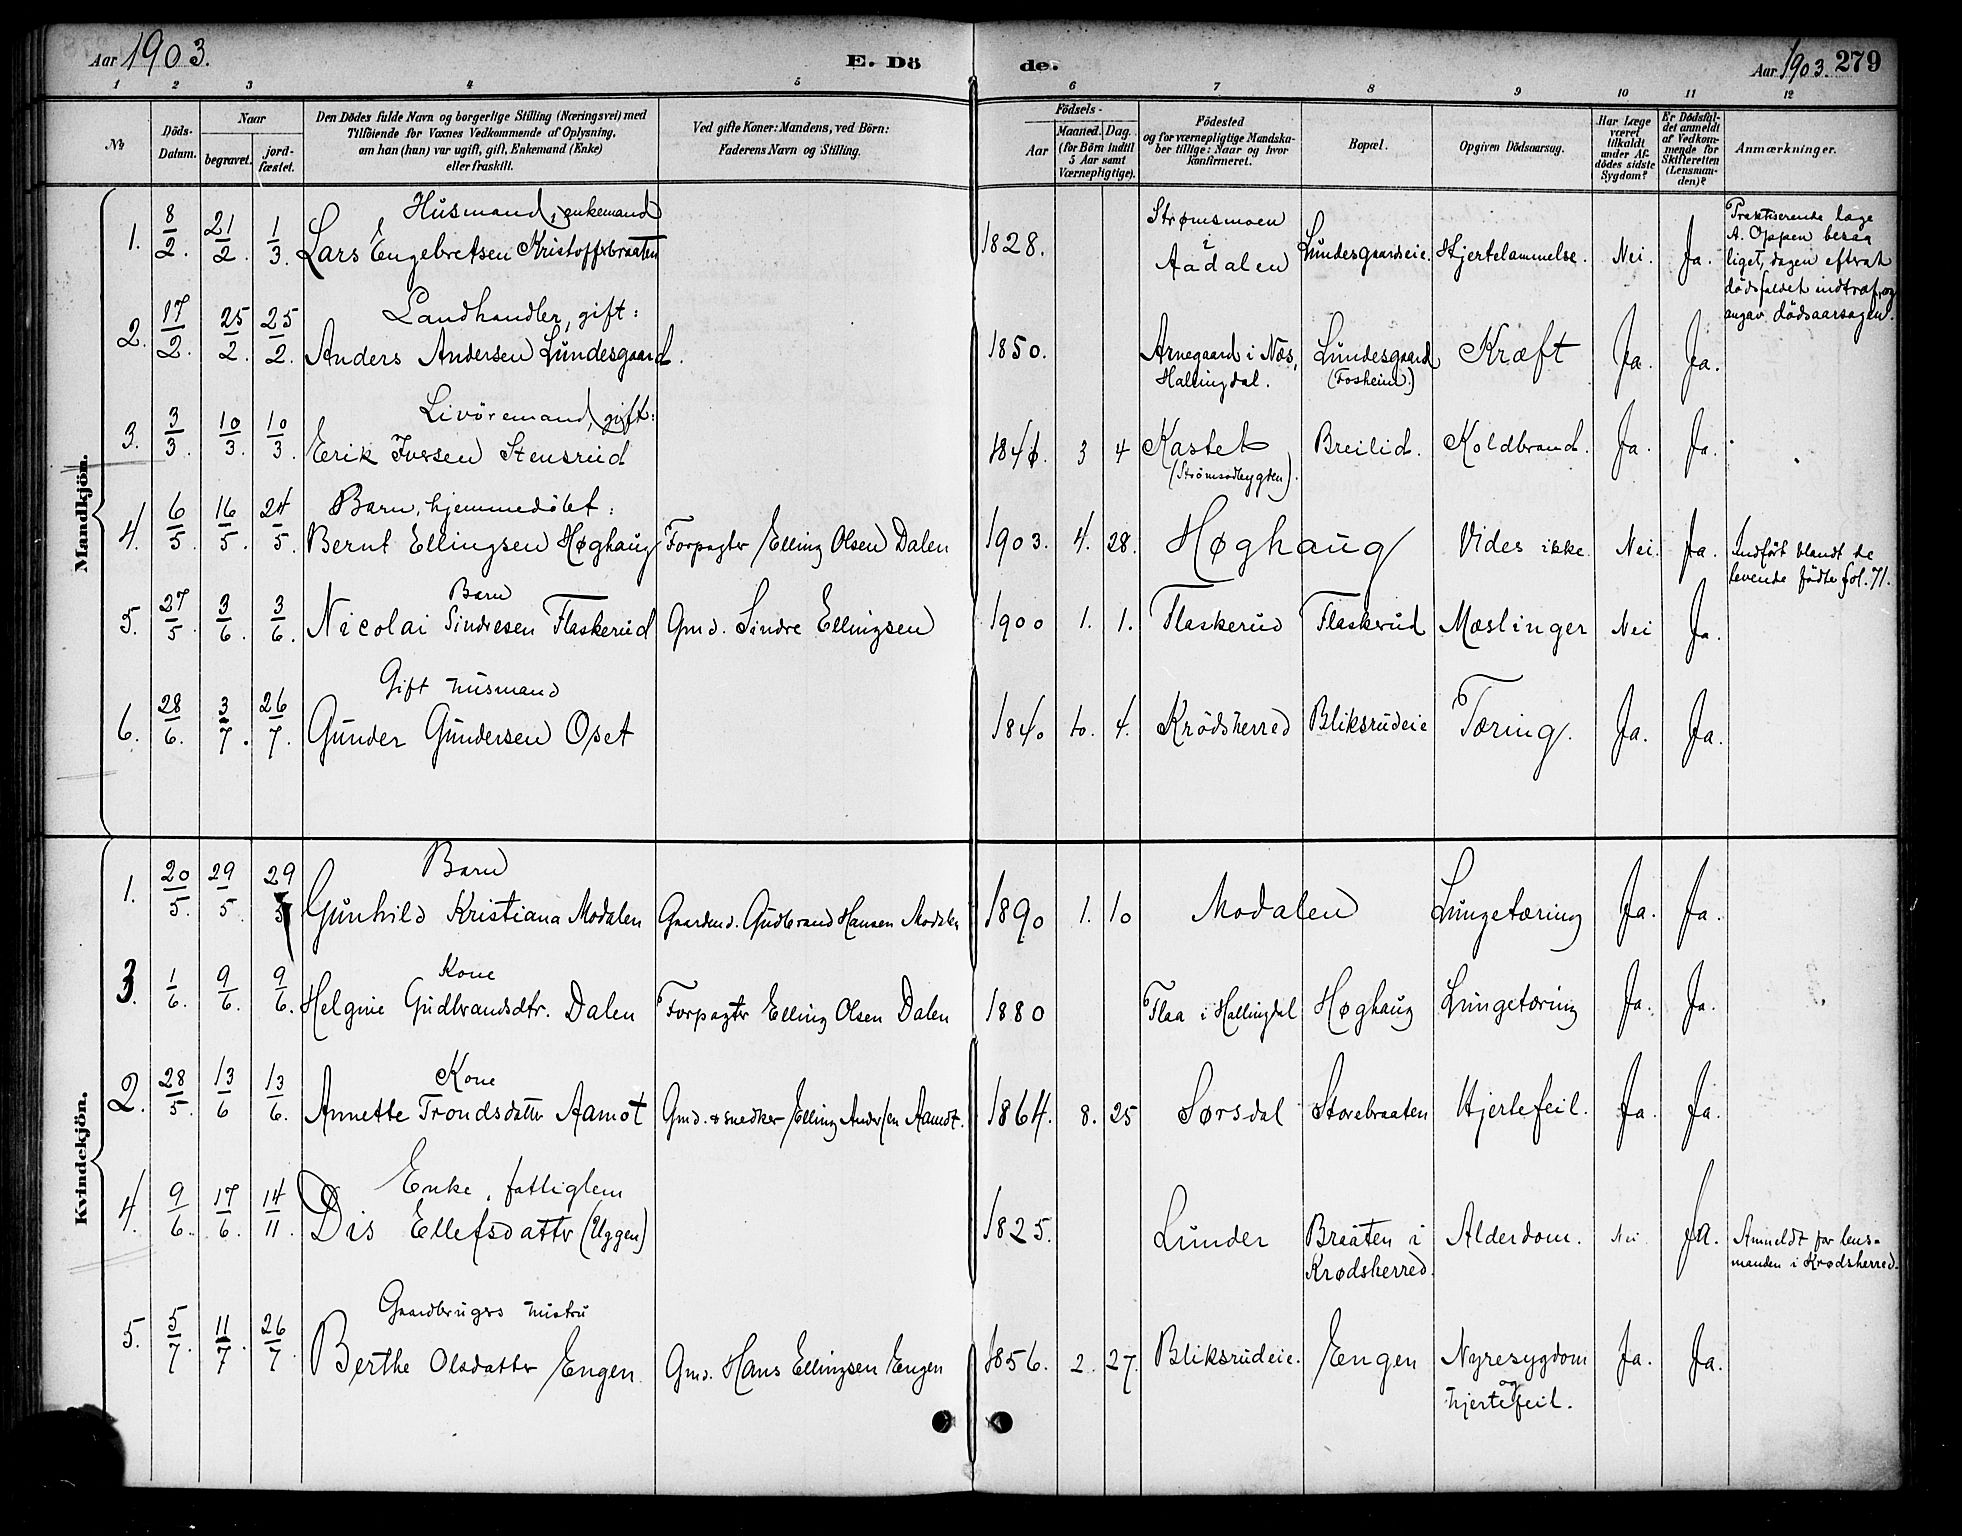 Aar 1903.
E. Dö
de.
Aar 1903. 279
1 2 3 4 5 6 7 8 9 10 11 12
No
Döds-Datum.
Naar
begravet.
jord-fæstet.
Den Dödes fulde Navn og borgerlige Stilling (Næringsvei) med
Tilföiende for Voxnes Vedkommende af Oplysning,
om han (hun) var ugift, gift, Enkemand (Enke)
eller fraskilt.
Ved gifte Koner: Mandens, ved Börn:
Faderens Navn og Stilling.
Födsels-
Aar
Maaned. Dag.
(for Börn indtil
5 Aar samt
Værnepligtige).
Födested
og for værnepligtige Mandska-
ber tillige: Naar og hvor
konfirmeret.
Bopæl.
Opgiven Dödsaarsag.
Har Læge
været
tilkaldt
under Af-
dödes sidste
Sygdom?
Er Dödsfal-
det anmeldt
af Vedkom-
mende for
Skifteretten
(Lensman-
den)?
Anmærkninger.
Mandkjön.
Husmand, enkemand
1. 8/2. 21/2. 1/3. Lars Engebretsen Kristoffersbraaten 1828. Strømsmoen i Aadalen Lundesgaardseie. Hjertelammelse. Nei. Ja.
Praktiserende læge
A. Oppen besaa
liget, dagen efterat
dödsfaldet indtraf, og
angav dödsaarsagen.
Landhandler, gift:
2. 17/2. 25/2. 25/2. Anders Andersen Lundesgaard. 1850. Arnegaard i Næs, Hallingdal. Lundesgaard (Fosheim) Kræft Ja. Ja.
Livöremand, gift:
3. 3/3. 10/3. 10/3. Erik Iversen Stensrud 3 4 Kastet (Strömsodbygden). Breilid. Koldbrand. Ja. Ja.
Barn, hjemmedöbt:
4. 6/5. 16/5. 24/5. Bernt Ellingsen Høghaug Forpagter Elling Olsen Dalen 1903. 4. 28. Høghaug Vides ikke. Nei. Ja.
Indfört blandt de
levende födte fol. 71.
Barn
5. 27/5. 3/6. 3/6. Nicolai Sindresen Flaskerud Gmd. Sindre Ellingsen 1900 1. 1. Flaskerud Flaskerud Mæslinger Nei Ja.
Gift husmand
6. 28/6. 3/7. 26/7. Gunder Gundersen Oset 1840 10. 4. Krödsherred Bliksrudeie Tæring. Ja. Ja.
Kvindekjön.
Barn
1. 20/5. 29/5. 29/5 Gunhild Kristiana Modalen Gaardmd. Gudbrand Hansen Modalen 1890 1. 10 Modalen Lungetæring Ja. Ja.
Kone
3. 1/6. 9/6. 9/6. Helgine Gudbrandsdtr. Dalen Forpagter Elling Olsen Dalen 1880 Flaa i Hallingdal Høghaug Lungetæring Ja. Ja.
Kone
2. 28/5. 13/6 13/6. Annette Trondsdatter Aamot Gmd. & snedker Elling Andersen Aamot. 1864. 8. 25 Sørsdal Storebraaten Hjertefeil. Ja. Ja.
Enke, fattiglem
4. 9/6. 17/6. 14/11. Dis Ellefsdatter (Uggen) 1825. Lunder Braaten i Krødsherred. Alderdom. Nei Ja.
Anmeldt for lens-
manden i Krødsherred.
Gaardbrugers hustru
5. 5/7. 11/7. 26/7. Berthe Olsdatter Engen. Gmd. Hans Ellingsen Engen 1856. 2. 27. Bliksrudeie. Engen Nyresygdom og hjertefeil. Ja. Ja.